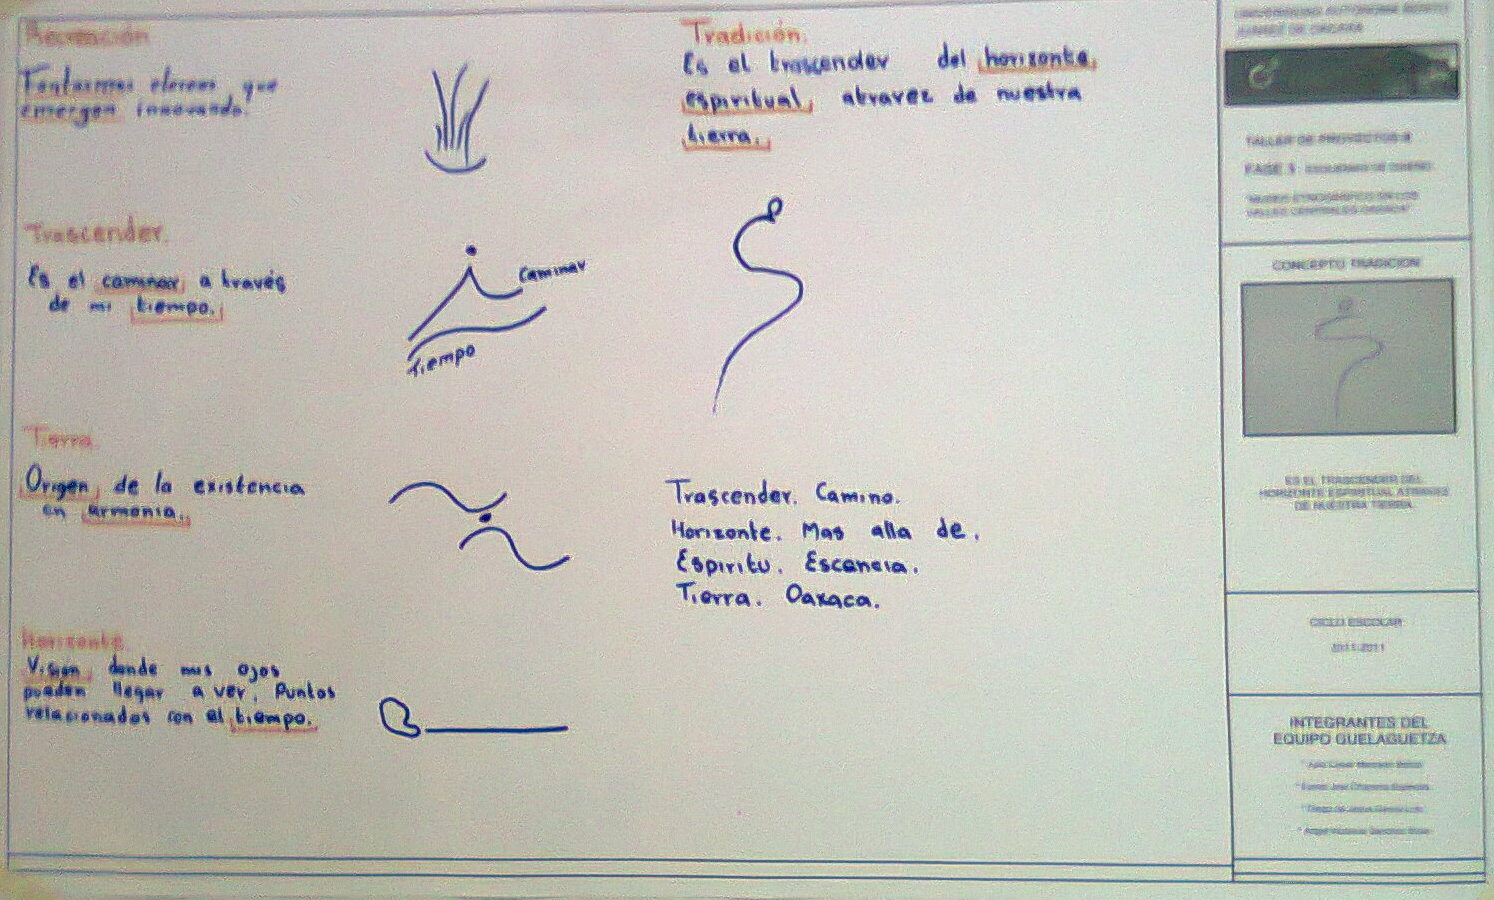 Recreación
Fantasmas eternos que
emergen innovando.
Trascender.
Es el caminar a través
de mi tiempo.
Caminar
Tiempo
Tierra.
Origen de la existencia
en armonia.
Horizonte.
Visión donde mis ojos
pueden llegar a ver. Puntos
relacionados con el tiempo.
Tradición.
Es el trascender del horizonte
espiritual atravez de nuestra
tierra.
Trascender. Camino.
Horizonte. Mas alla de.
Espiritu. Escencia.
Tierra. Oaxaca.
UNIVERSIDAD AUTONOMA BENITO
JUAREZ DE OAXACA
TALLER DE PROYECTOS 8
FASE 3: ESQUEMAS DE DISEÑO
"MUSEO ETNOGRAFICO EN LOS
VALLES CENTRALES OAXACA"
CONCEPTO TRADICION
ES EL TRASCENDER DEL
HORIZONTE ESPIRITUAL ATRAVEZ
DE NUESTRA TIERRA.
CICLO ESCOLAR
2011-2011
INTEGRANTES DEL
EQUIPO GUELAGUETZA